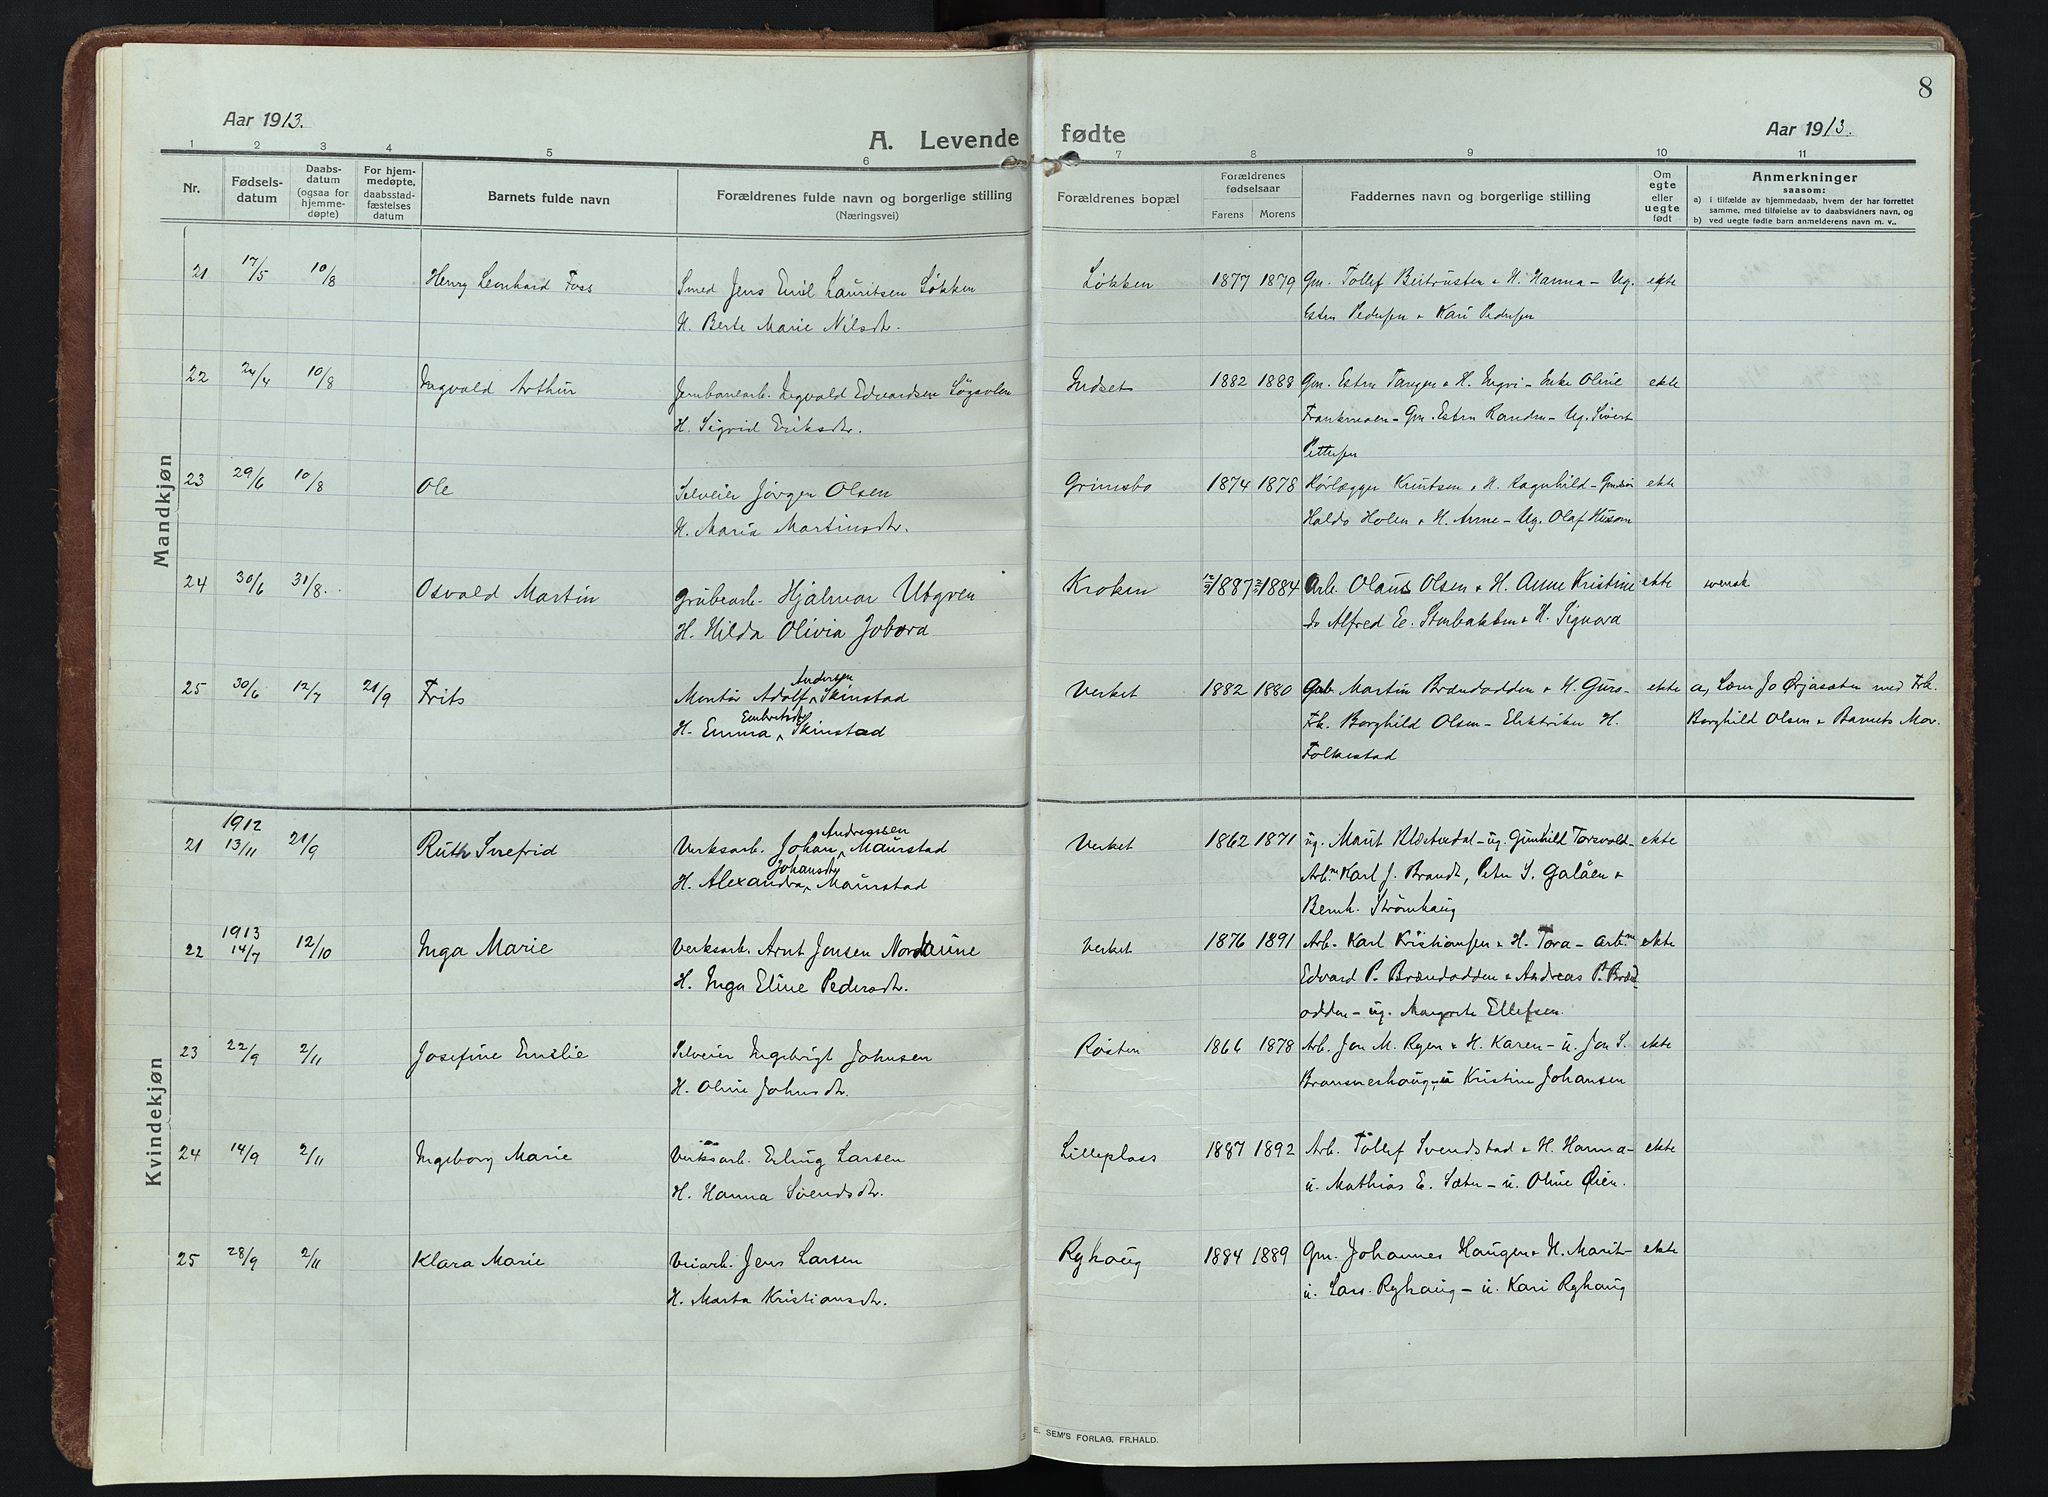 8
Aar 1913.
A. Levende fødte
Aar 1913.
1 2 3 4 5 6 7 8 9 10 11
Nr.
Fødsels-
datum
Daabs-
datum
(ogsaa for
hjemme-
døpte)
For hjem-
medøpte,
daabsstad-
fæstelses
datum
Barnets fulde navn
Forældrenes fulde navn og borgerlige stilling
(Næringsvei)
Forældrenes bopæl
Forældrenes
fødselsaar
Farens Morens
Faddernes navn og borgerlige stilling
Om
egte
eller
uegte
født
Anmerkninger
saasom:
a) i tilfælde av hjemmedaab, hvem der har forrettet
samme, med tilføielse av to daabsvidners navn, og
b) ved uegte fødte barn anmelderens navn m. v..
Mandkjøn
21 17/5 10/8 Henry Leonhard Foss Smed Jens Emil Lauritsen Løkken Løkken 1877 1879 Gm. Tollef Beitrusten & H. Hanna - Ug. ekte
H. Berte Marie Nilsdtr. Esten Pedersen & Kari Pedersen
22 24/4 10/8 Ingvald Arthur Jernbanearb. Ingvald Edvardsen Indset 1882 1888 Gm. Esten Tangen & H. Ingri - Enke Oline ekte
H. Sigrid Eriksdtr. Gm. Esten Randen - Ug. Sivert
Pettersen
23 29/6 10/8 Ole Selveier Jørgen Olsen Grimsbo 1874 1878 Rørlægger Knutsen & H. Ragnhild - ekte
H. Maria Martinsdtr. Haldo Holen & H. Anne - Ug. Olaf Husom
24 30/6 31/8. Osvald Martin Grubearb. Hjalmar Utgren Kroken 1887 1884 Arb. Olaus Olsen & H. Anne Kristine ekte svensk
H. Hilda Olivia Do Alfred E. Stenbakken & H. Signora
25 30/6 12/7 21/9 Frits Montør Adolf Andersen Skinstad Verket 1882 1880 Martin Brændadden & H. Guro - ekte a, Lærer Jo Ørjasæter med Frk.
H. Emma Embretsdtr Skinstad Frk. Borghild Olsen - Elektriker H. Borghild Olsen & Barnets Mor.
Folkestad
Kvindekjøn
1912
21 13/11 21/9 Ruth Snefrid Verksarb. Johan Andreassen Maurstad Verket 1862 1871 ug. Marit - ug. Gunhild Torsvold - ekte
H. Alexandra Johansdtr Maurstad Arb.m Karl J. Brandt, Peter S. Galåen &
Bernh. Strømhaug
1913
22 14/7 12/10 Inga Marie Verksarb. Arnt Jensen Verket 1876 1891 Arb. Karl Kristiansen & H. Tora - arb.m ekte
H. Inga Eline Pedersdtr. Edvard P. Brændadden & Andreas P. Bræd-
adden - ug. Margrete Ellefsen.
23 22/9 2/11 Josefine Emilie Selveier Ingebrigt Johnsen Røsten 1866 1878 Arb. Jon M. Ryen & H. Karen - u. Jon S. ekte
H. Oline Johnsdtr. u Kristine Johansen
24 14/9 2/11 Ingeborg Marie Verksarb. Erling Larsen Lilleplass 1887 1892 Arb. Tollef Svendstad & H. Hanna - ekte
H. Hanna Svendsdtr. u. Mathias E. Sæter - u. Oline Øien.
25 28/9 2/11 Klara Marie Veiarb. Jens Larsen Ryhaug 1884 1889 Gm. Johannes Haugen & H. Marit - ekte
H. Marta Kristiansdtr. u. Lars Ryhaug - u. Kari Ryhaug
E. SEM'S FORLAG, FR.HALD.